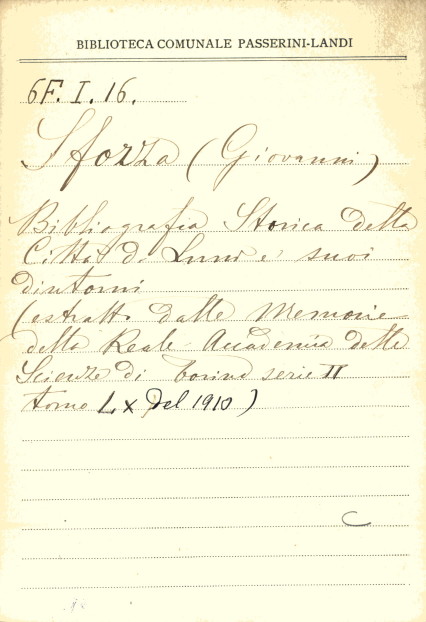 BIBLIOTECA COMUNALE PASSERINI-LANDI
6F. I. 16.
Sforza (Giovanni)
Bibliografia Storica della
Città di Luni e suoi
dintorni
(estratto dalle Memorie
della Reale Accademia delle
Scienze di Torino serie II
tomo LX del 1910)
C